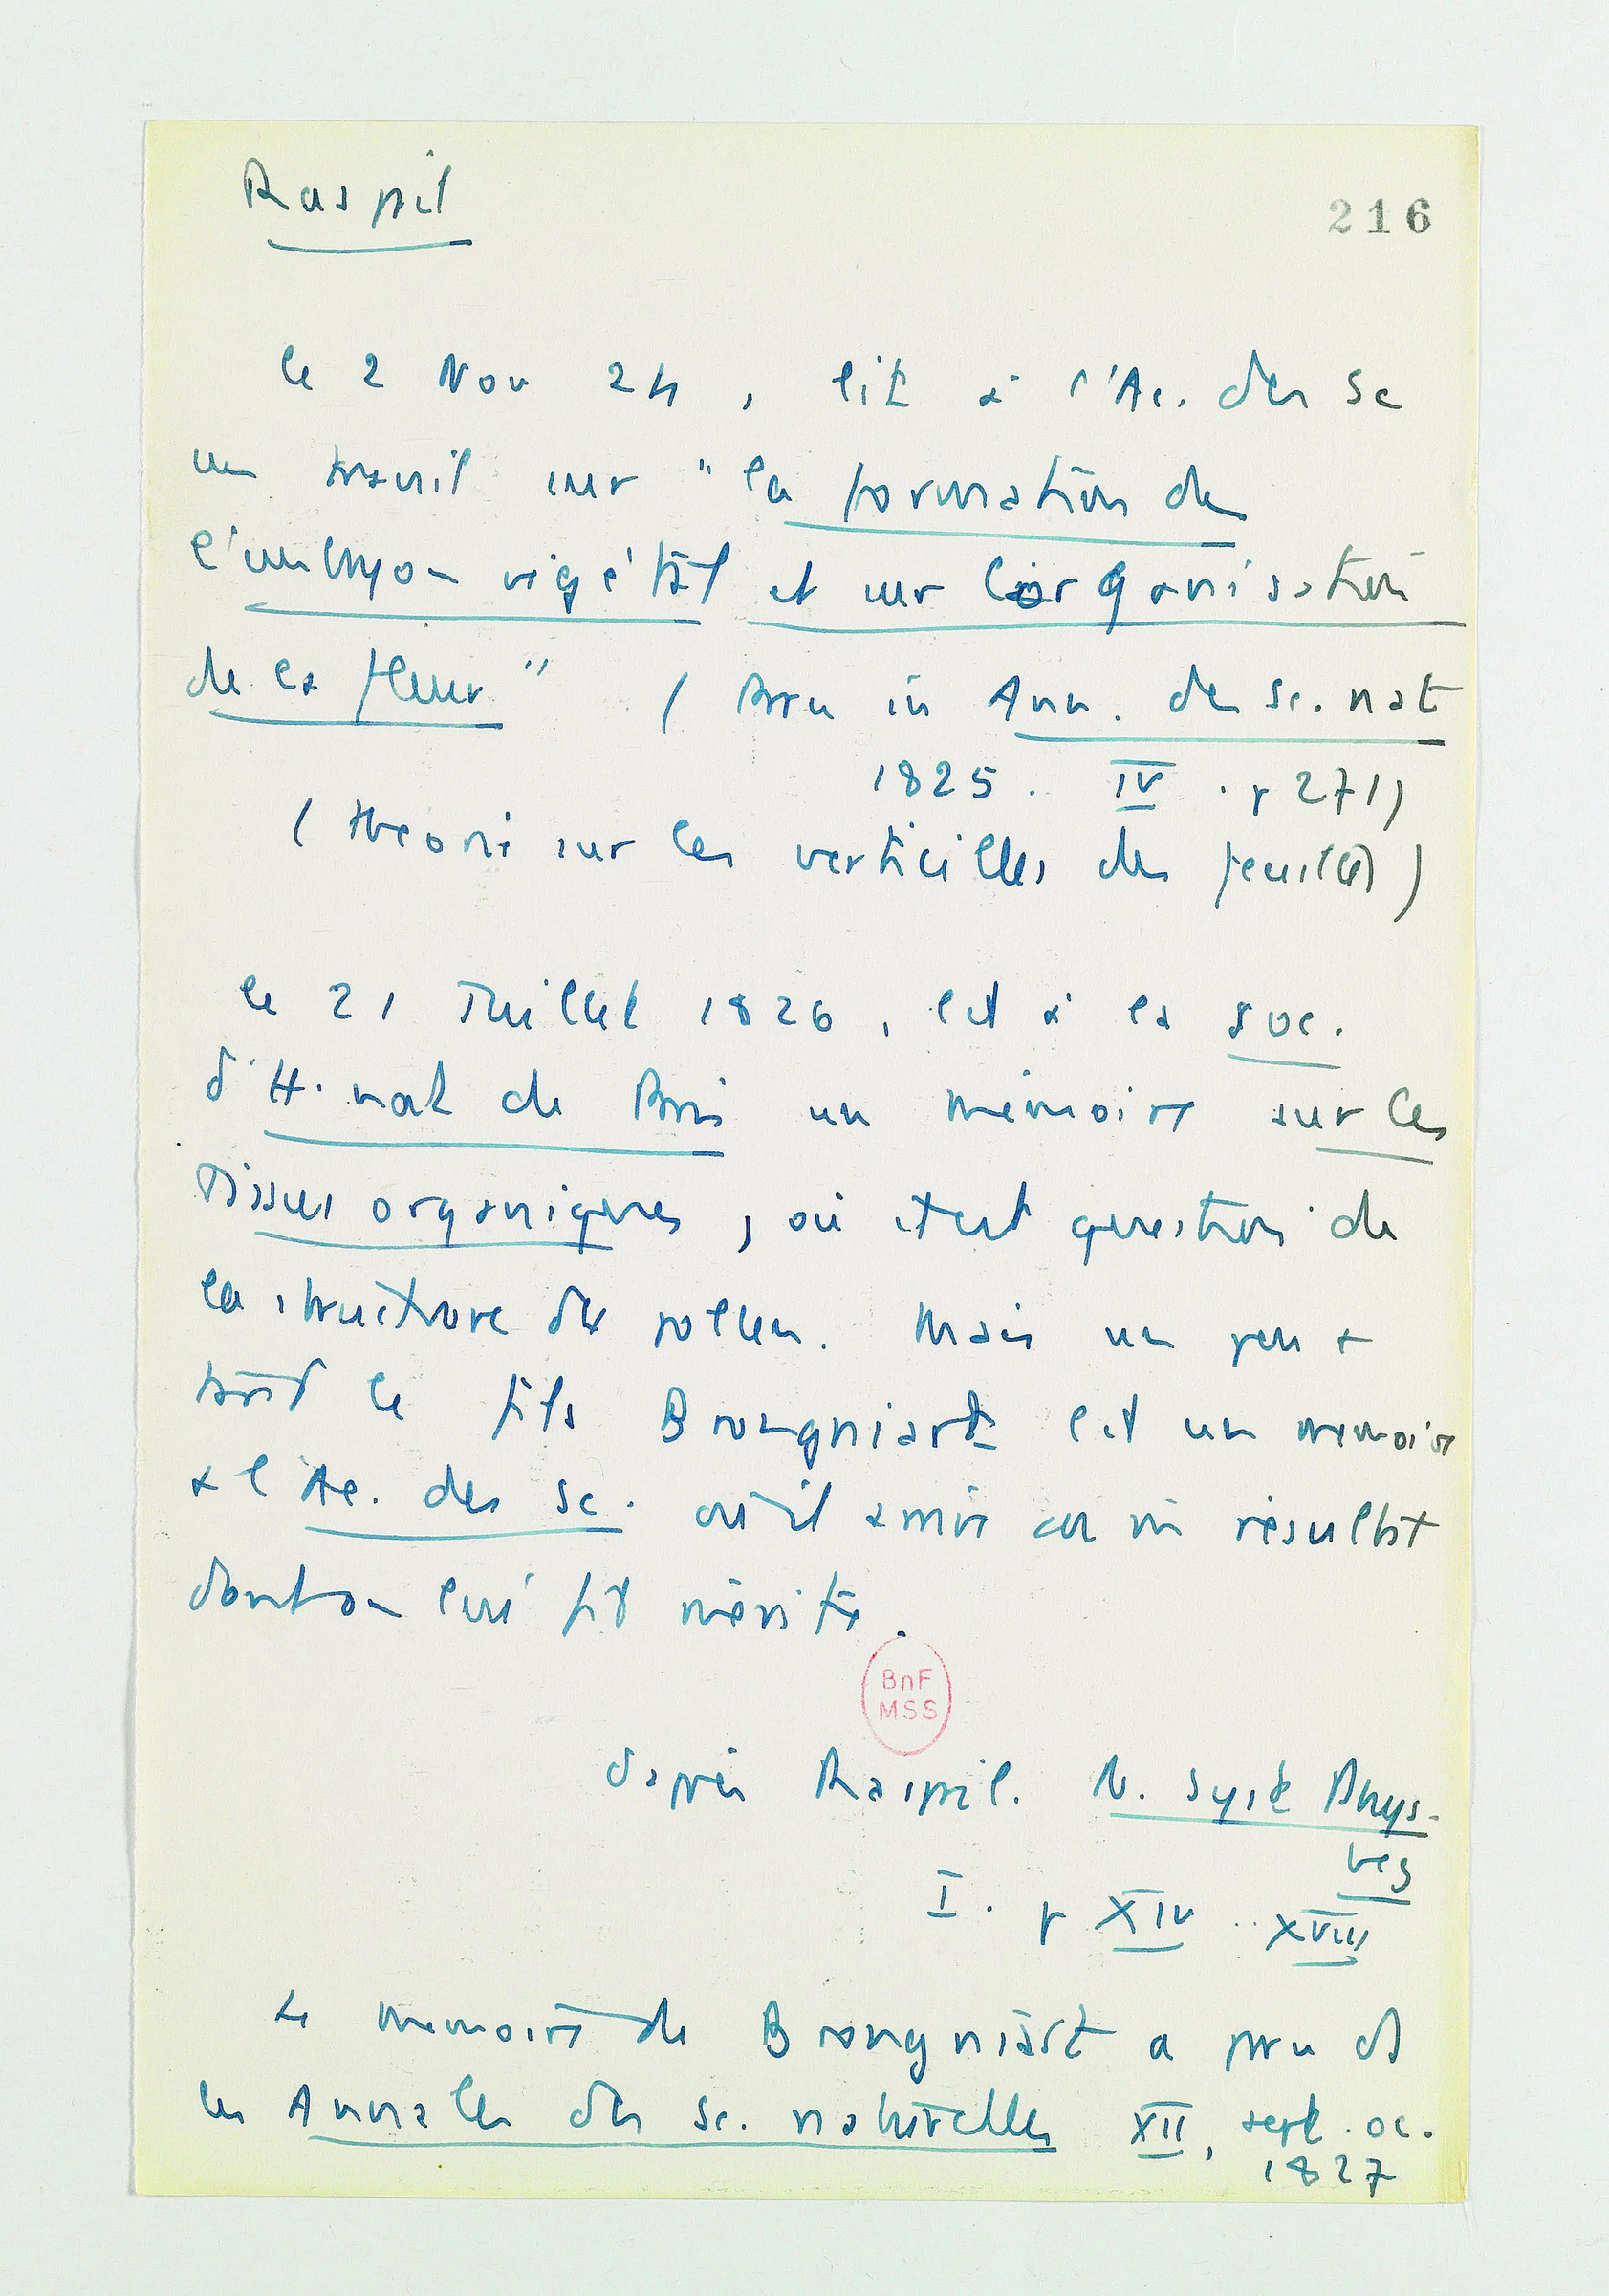 Raspail
216
le 2 Nov 24, lit à l'Ac. des Sc
un travail sur "la formation de
l'embryon végétal et sur l'organisation
de la fleur" (paru in Ann. des Sc. nat
1825. IV. p 271)
(théorie sur les verticilles des feuilles)
le 21 Juillet 1826, lit à la soc.
d'H. nat de Paris un mémoire sur les
Tissus organiques, où était question de
la structure du pollen. Mais un peu +
tard le fils Brongniart lit un mémoire
à l'Ac. des sc. où il arrive au m résultat
dont on lui fit mérite.
BnF
MSS
d'après Raspail. N. Syst Phys.
veg
I. p XIV .. XVIII
Le mémoire de Brongniart a paru ds
les Annales des sc. naturelles XII, sept. oc.
1827